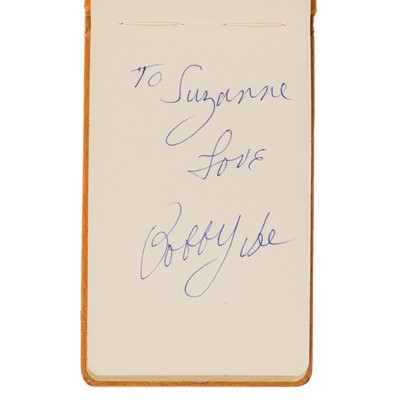 To Suzanne
Love
Bobby Vee